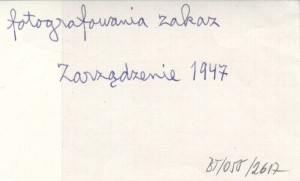 fotografowania zakaz
Zarządzenie 1947
/2617